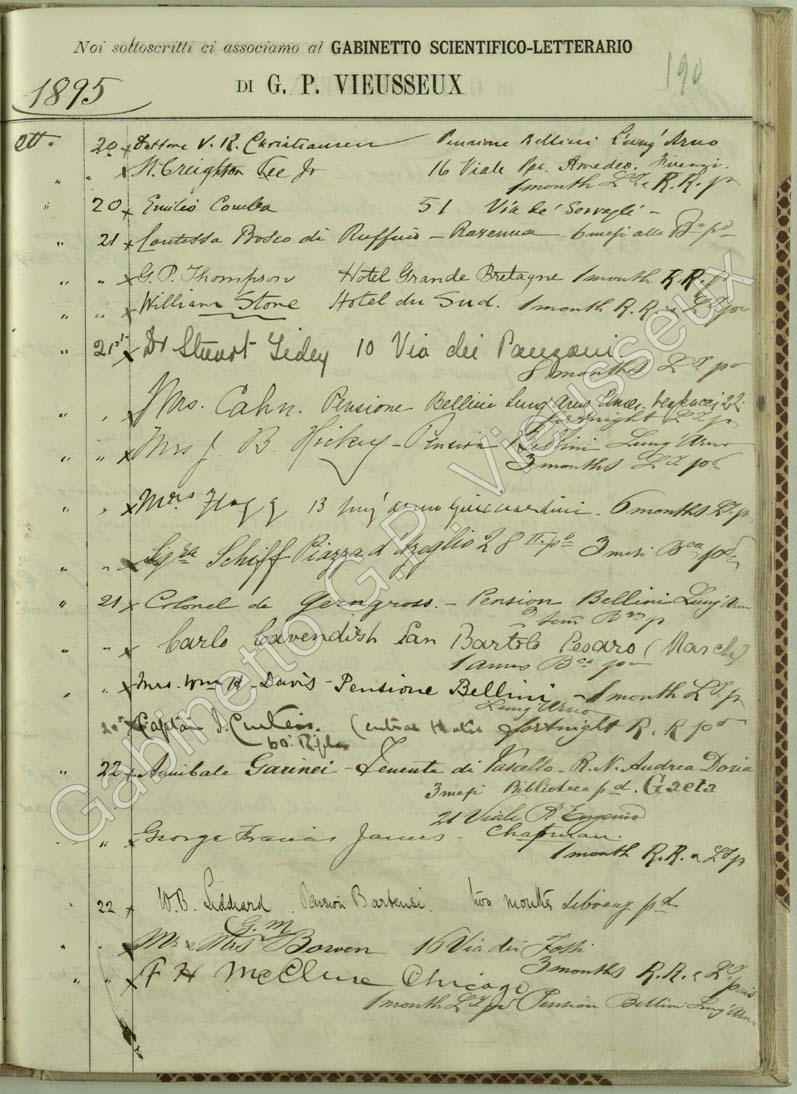 Noi sottoscritti ci associamo al GABINETTO SCIENTIFICO-LETTERARIO
190
DI G. P. VIEUSSEUX
1895
Ott. 20 x Dottore V. R. Christiansen Pensione Bellini Lung' Arno
" " x Creighton Lee Jr 16 Viale Amedeo.
1 month Lʸ & R.R. pd
20 x Emilio Comba 51 Via de' Serragli -
" 21 x Contessa di Ruffino - Ravenna 6 mesi alla
" " x G. P. Thompson Hotel Grande Bretagne 1 month R.R. pd
" " x William Stone Hotel du Sud. 1 month R.R. & Lʸ pd
" 21st x Dr Stuart Tidey 10 Via dei Panzani
8 months Lʸ pd
" " x Mrs. Cahn. Pensione Bellini Lung' Arno 22.
fortnight Lʸ pd
" " x Mrs J. B. Hickey - Pension Bellini Lung Arno
3 months Lʸ pd
" " x Mrs Hogg 13 Lung' arno Guicciardini. 6 months Lʸ pd
" " x Sigra Schiff Piazza d'Azeglio 28 II. po 3 mesi Bca pd
" 21 x Colonel de Gerngross. - Pension Bellini Lung' Arno
pd
" " x Carlo Cavendish San Bartolo Pesaro (Marche)
1 anno Bca pd
" " x Mrs. Wm H. Davis - Pensione Bellini - 1 month Lʸ pd
Lung' Arno
" x Captain J. Curteis. Central Hotel fortnight R. R pd
60th Rifles
" 22 x Annibale Garinei - Tenente di Vascello. R. N. Andrea Doria
3 mesi Biblioteca pd. Gaeta
21 Viale
" " x George Francis James - Chapman.
1 month R.R. & Lʸ pd
" 22 x W. B. Liddiard. Pension two months Library pd
G. M
" " x Mr & Mrs Bowen 16 Via dei Fossi
3 months R.R. & Lʸ paid
" " x F H McClure Chicago
1 month Lʸ pd Pension Bellini Lung' Arno
Gabinetto G.P. Vieusseux